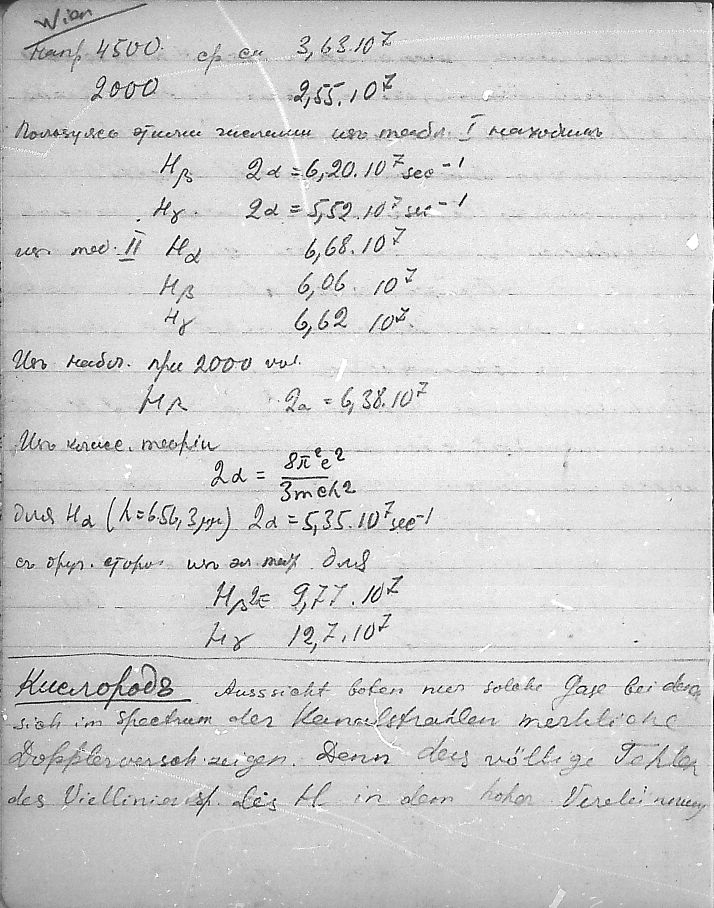 Wien
Напр 4500. ср си 3,63.10⁷
2000 2,55.10⁷
Пользуясь этими числами изъ табл. I находимъ
Hβ 2α = 6,20.10⁷ sec⁻¹
Hγ 2α = 5,52.10⁷ sec⁻¹
изъ таб. II Hα 6,68.10⁷
Hβ 6,06. 10⁷
Hγ 6,62 10⁷
Изъ набл. при 2000 vol.
Hβ 2α = 6,38.10⁷
Изъ класс. теоріи
2α = 8π²e² / 3mcλ²
для Hα (λ=656,3 μμ) 2α = 5,35.10⁷ sec⁻¹
съ друг. сторо изъ эл теор для
Hβ 2α= 9,77.10⁷
Hγ 12,7.10⁷
Кислородъ Aussicht boten nur solche Gase bei denen
sich im Spectrum der Kanalstrahlen merkliche
Dopplerversch. zeigen. Denn das völlige Fehlen
des Viellinien sp. des H in dem hohen